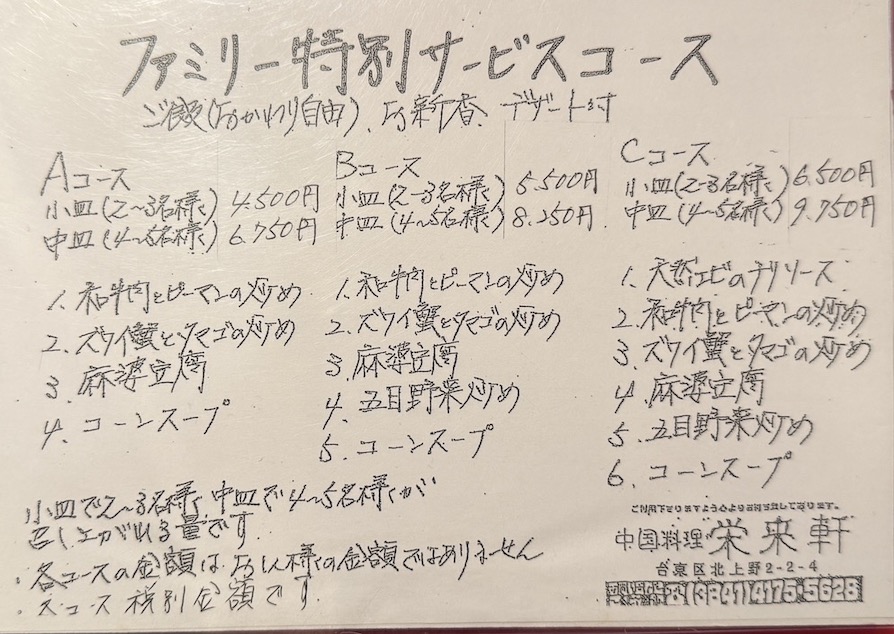 ファミリー特別サービスコース
ご飯(おかわり自由)、お新香、デザート付
Aコース
小皿(2〜3名様) 4.500円
中皿(4〜5名様) 6.750円
1. 和牛肉とピーマンの炒め
2. ズワイ蟹とタマゴの炒め
3. 麻婆豆腐
4. コーンスープ
Bコース
小皿(2〜3名様) 5.500円
中皿(4〜5名様) 8.250円
1. 和牛肉とピーマンの炒め
2. ズワイ蟹とタマゴの炒め
3. 麻婆豆腐
4. 五目野菜炒め
5. コーンスープ
Cコース
小皿(2〜3名様) 6.500円
中皿(4〜5名様) 9.750円
1. 天然エビのチリソース
2. 和牛肉とピーマンの炒め
3. ズワイ蟹とタマゴの炒め
4. 麻婆豆腐
5. 五目野菜炒め
6. コーンスープ
小皿で2〜3名様、中皿で4〜5名様が
召し上がれる量です
・各コースの金額は、お1人様の金額ではありません
・各コース税別金額です
ご利用下さりますよう心よりお待ち致して居ります。
中国料理 栄来軒
台東区北上野2-2-4
(3841)4175・5628